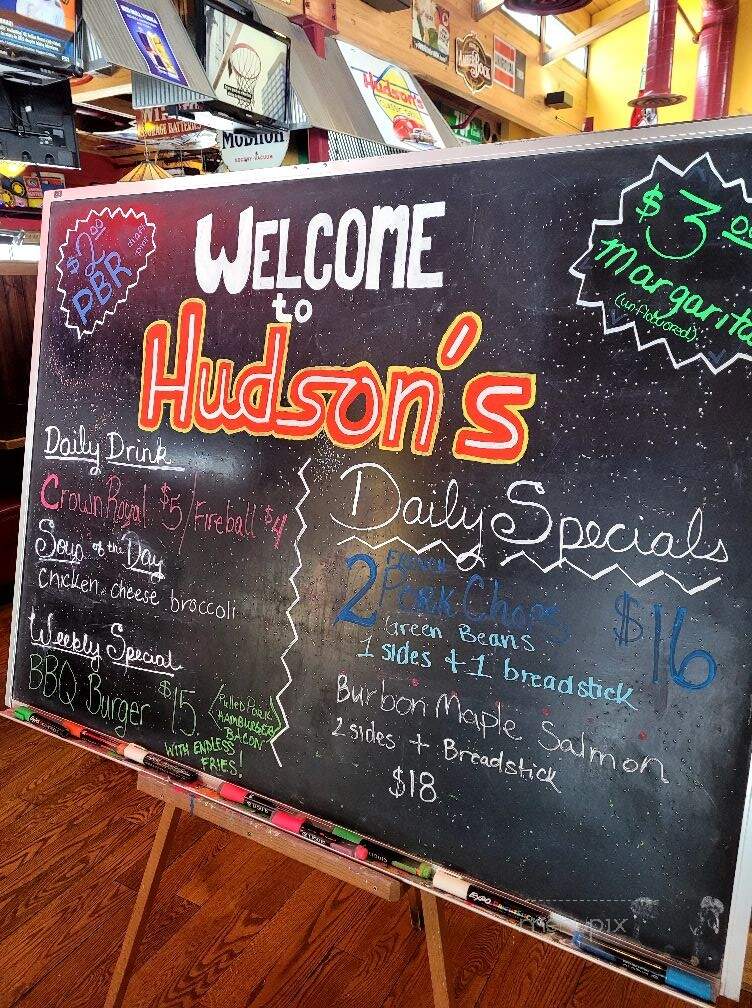 Hudson's
WIX
STORAGE BATTERIES
$2.00
draft pint
PBR
WELCOME
to
Hudson's
$3.00
Margarita
(unflavored)
Daily Drink
Crown Royal $5/Fireball $4
Soup of the Day
Chicken cheese broccoli
Weekly Special
BBQ Burger $15
Pulled Pork
HAMBURGER
BACON
WITH ENDLESS
FRIES!
Daily Specials
2 Pork Chops $16
Green Beans
1 sides + 1 breadstick
Burbon Maple Salmon
2 sides + Breadstick
$18
EXPO